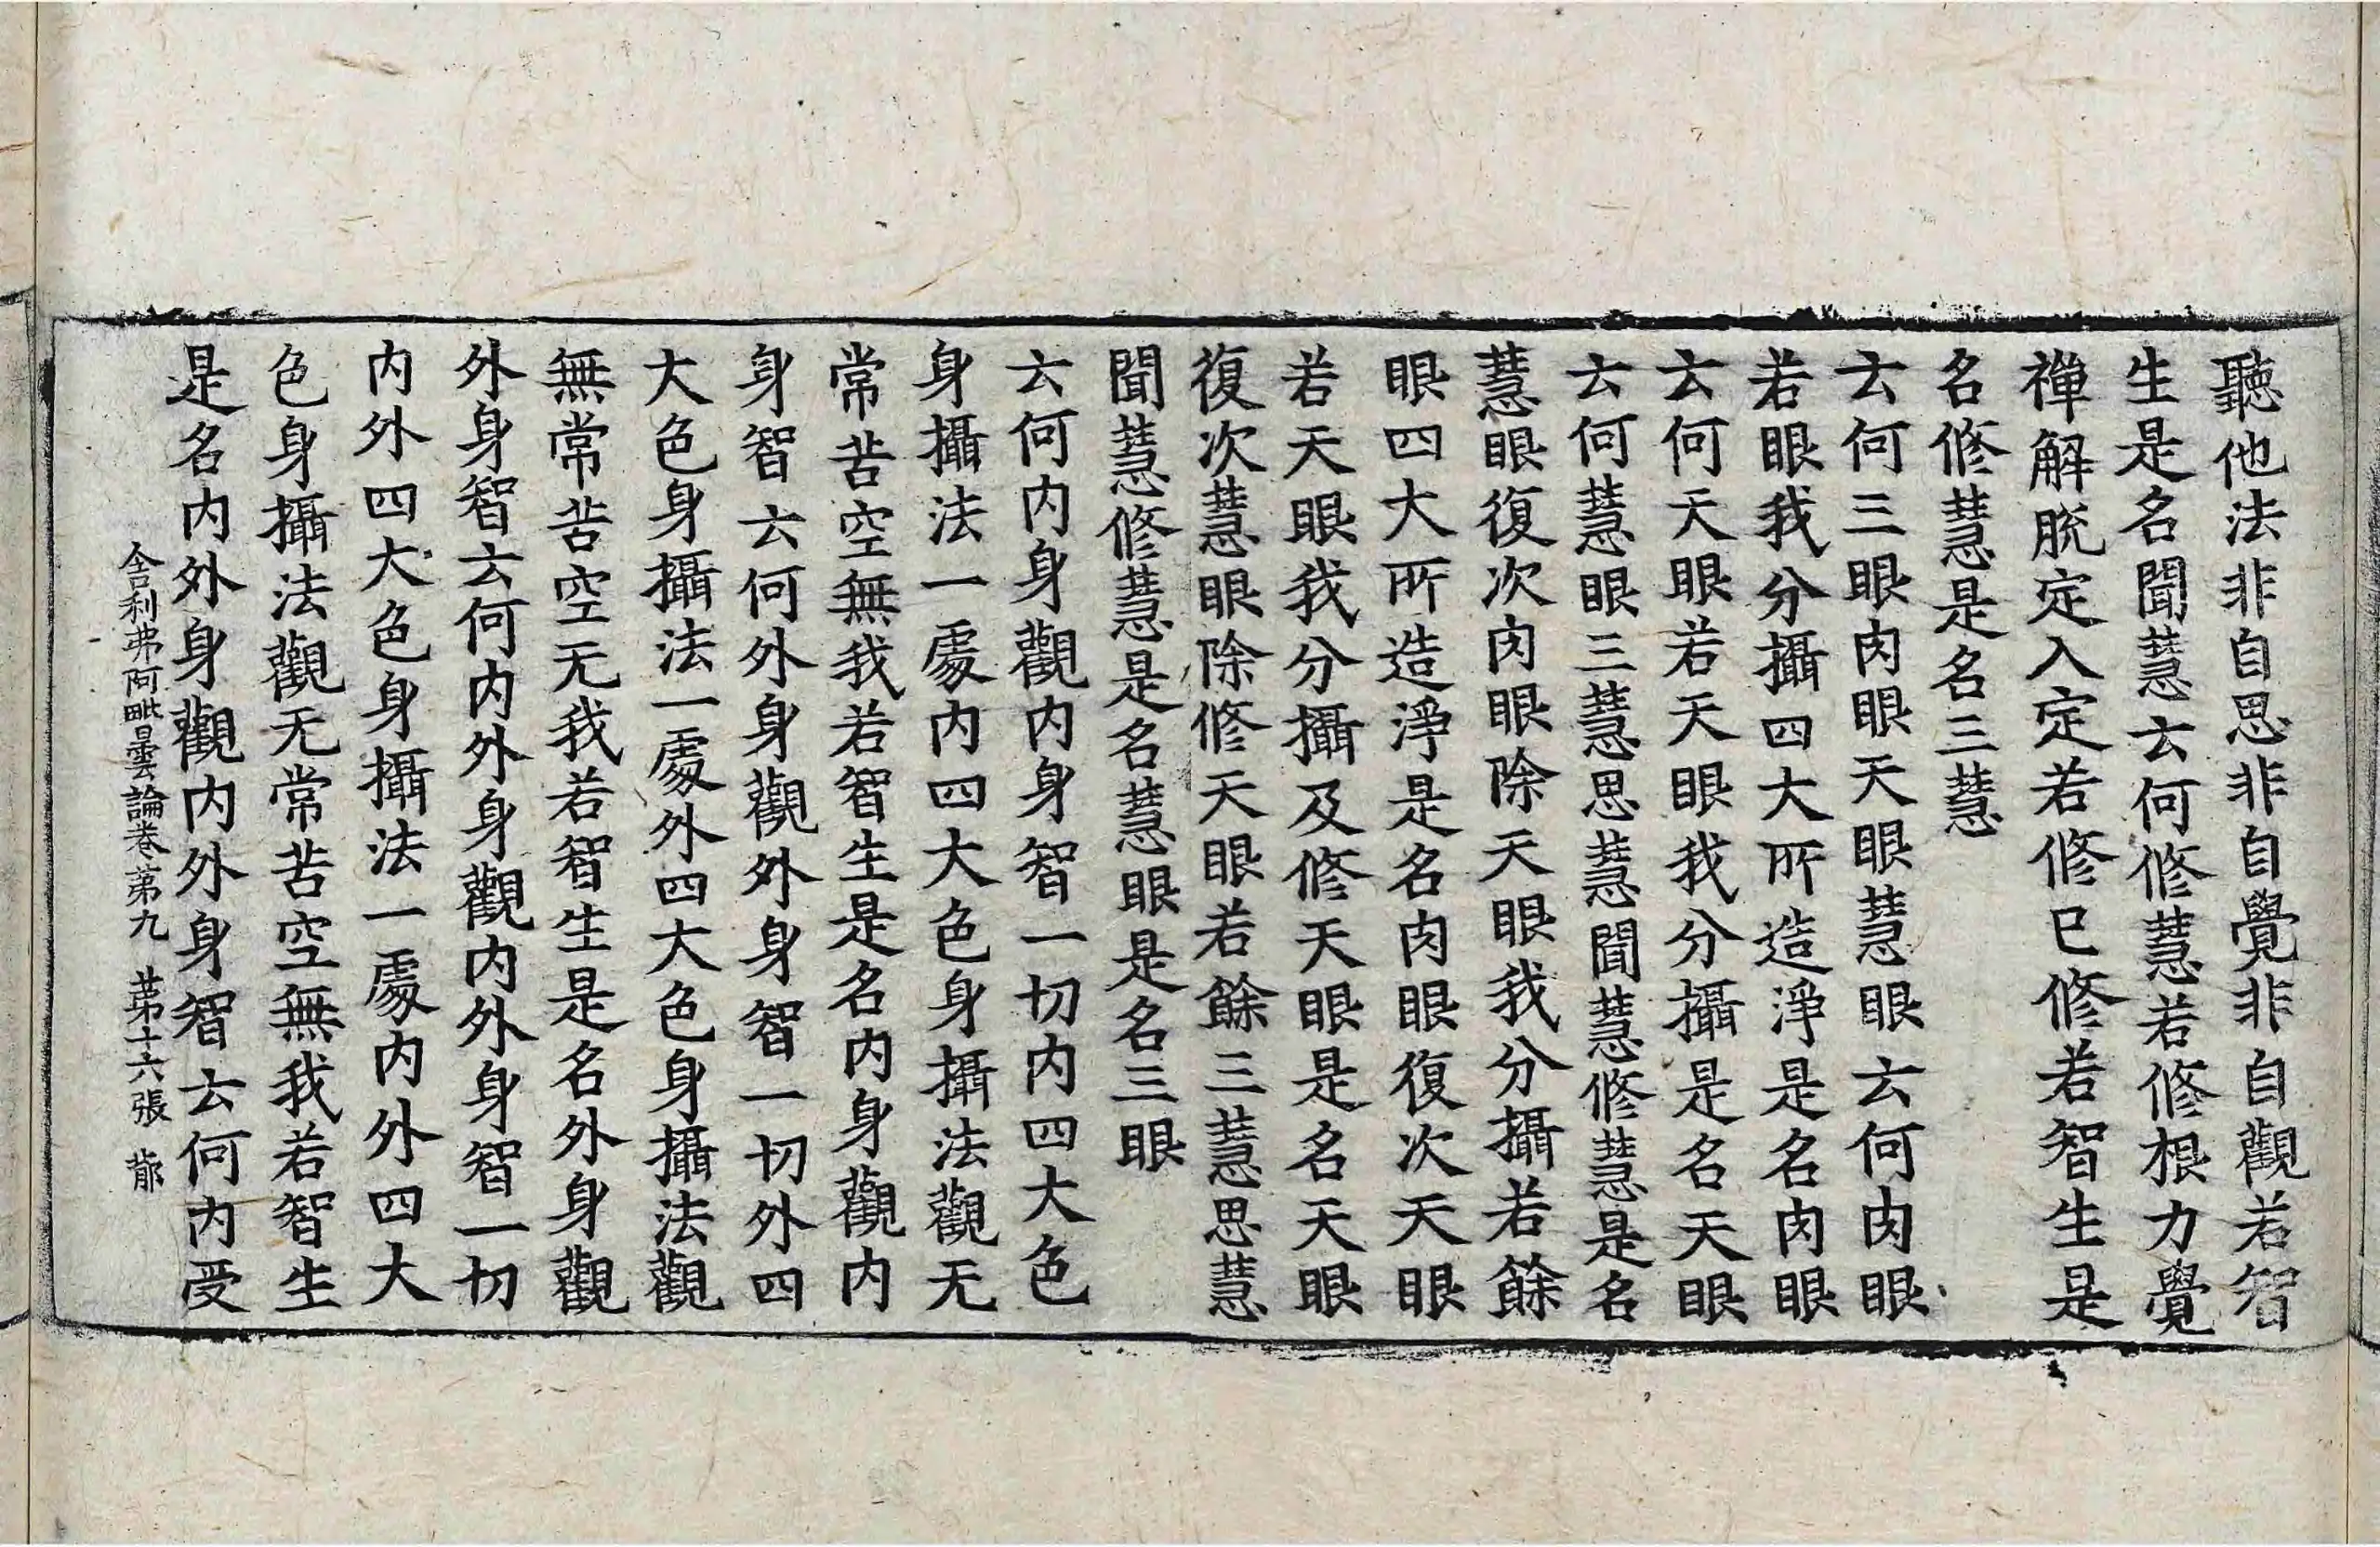 聽他法非自思非自覺非自觀若智
生是名聞慧云何修慧若修根力覺
禪解脫定入定若修已修若智生是
名修慧是名三慧
云何三眼肉眼天眼慧眼云何肉眼
若眼我分攝四大所造淨是名肉眼
云何天眼若天眼我分攝是名天眼
云何慧眼三慧思慧聞慧修慧是名
慧眼復次肉眼除天眼我分攝若餘
眼四大所造淨是名肉眼復次天眼
若天眼我分攝及修天眼是名天眼
復次慧眼除修天眼若餘三慧思慧
聞慧修慧是名慧眼是名三眼
云何内身觀内身智一切内四大色
身攝法一處内四大色身攝法觀无
常苦空無我若智生是名内身觀内
身智云何外身觀外身智一切外四
大色身攝法一處外四大色身攝法觀
無常苦空无我若智生是名外身觀
外身智云何内外身觀内外身智一切
内外四大色身攝法一處内外四大
色身攝法觀无常苦空無我若智生
是名内外身觀内外身智云何内受
舍利弗阿毗曇論卷第九 第十六張